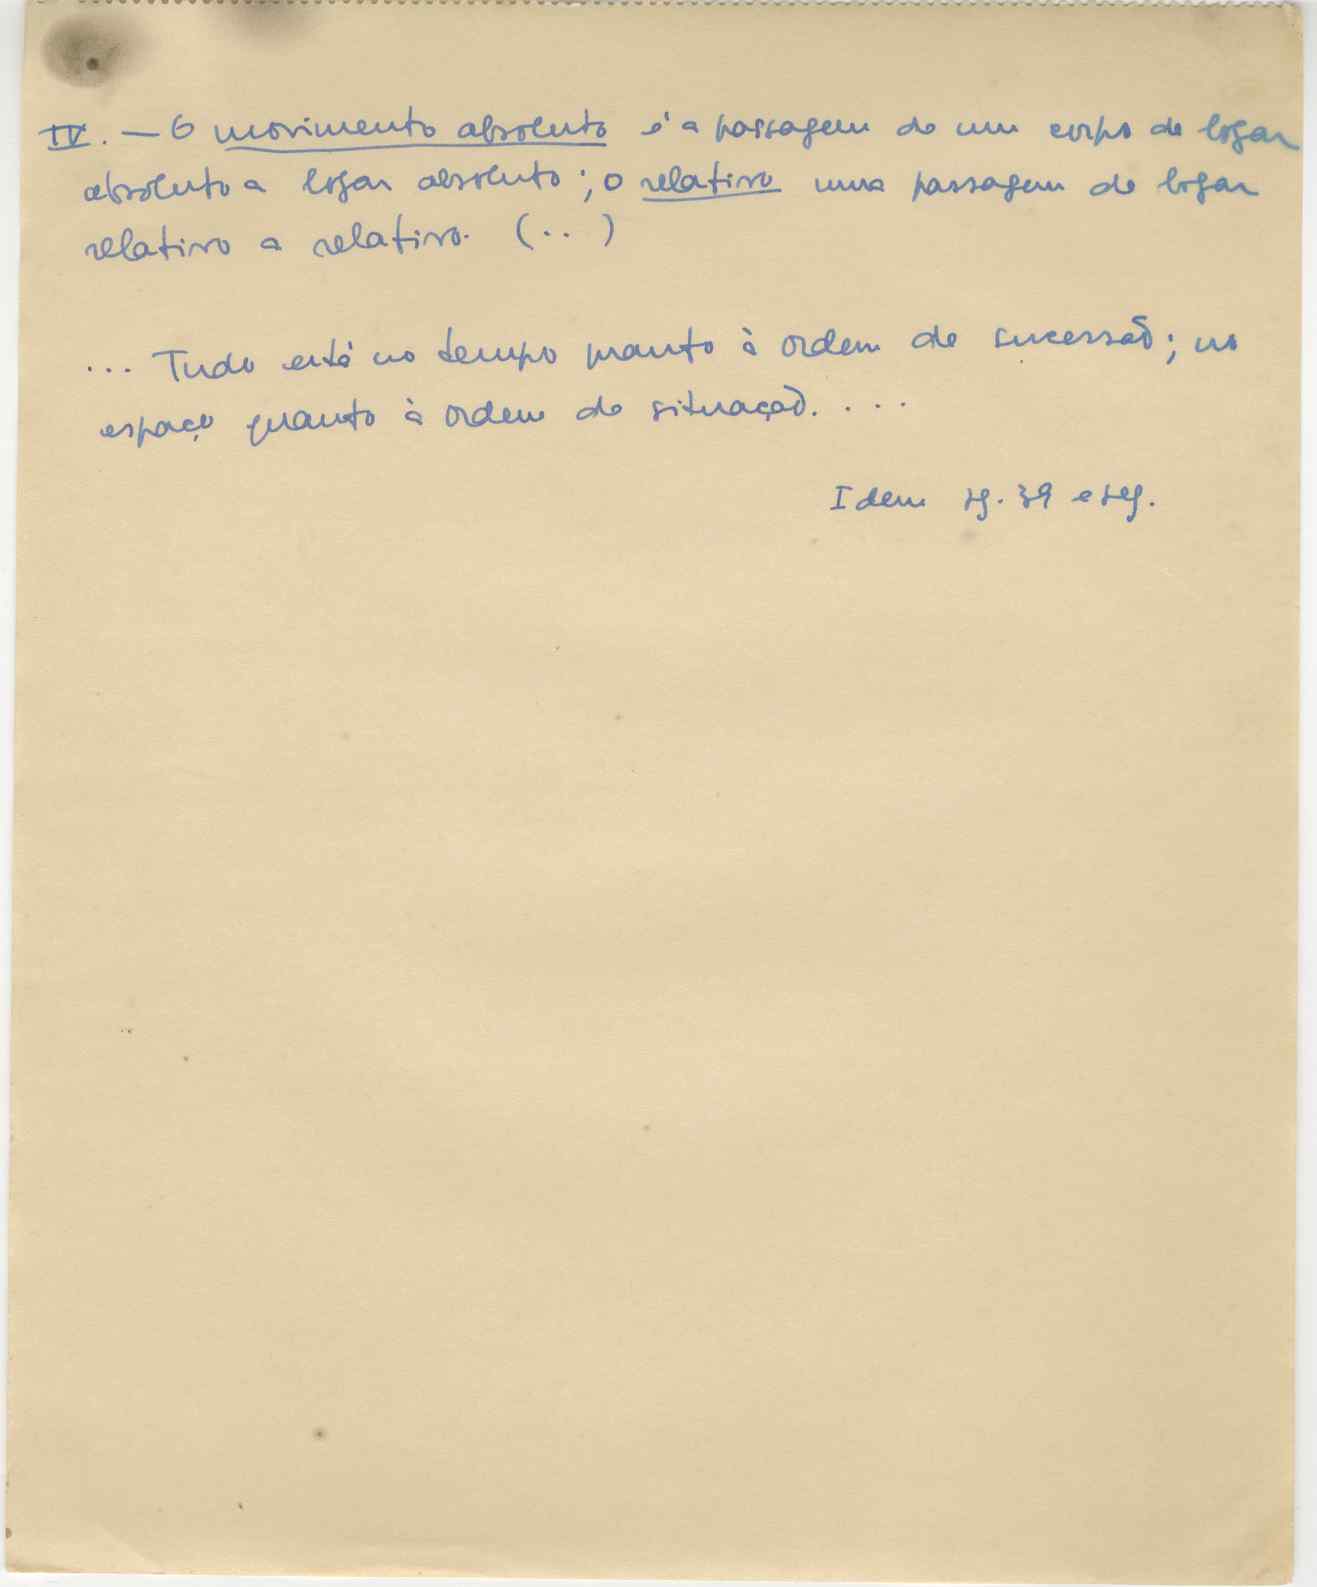 IV. — O movimento absoluto é a passagem de um corpo de logar
absoluto a logar absoluto; o relativo uma passagem de logar
relativo a relativo. (..)
... Tudo está no tempo quanto à ordem de sucessão; no
espaço quanto à ordem de situação. ...
Idem pg. 39 e seg.